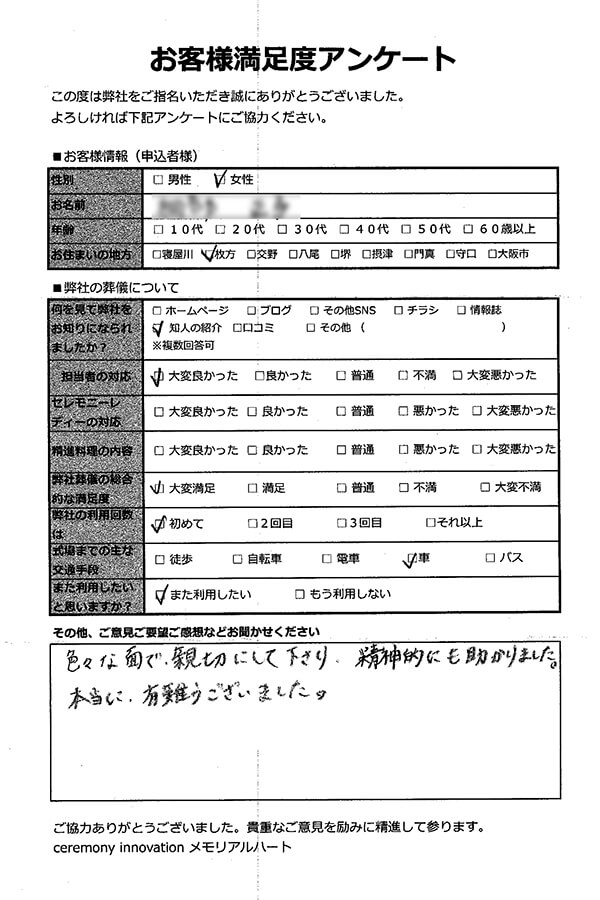 お客様満足度アンケート
この度は弊社をご指名いただき誠にありがとうございました。
よろしければ下記アンケートにご協力ください。
■お客様情報（申込者様）
性別 □ 男性 ☑ 女性
お名前
年齢 □ 10代 □ 20代 □ 30代 □ 40代 □ 50代 □ 60歳以上
お住まいの地方 □寝屋川 ☑枚方 □交野 □八尾 □堺 □摂津 □門真 □守口 □大阪市
■弊社の葬儀について
何を見て弊社を □ ホームページ □ ブログ □ その他SNS □ チラシ □ 情報誌
お知りになられ ☑ 知人の紹介 □口コミ □ その他（ ）
ましたか？ ※複数回答可
担当者の対応 ☑ 大変良かった □良かった □ 普通 □ 不満 □ 大変悪かった
セレモニーレ
ディーの対応 □ 大変良かった □ 良かった □ 普通 □ 悪かった □ 大変悪かった
精進料理の内容 □ 大変良かった □ 良かった □ 普通 □ 悪かった □ 大変悪かった
弊社葬儀の総合
的な満足度 ☑ 大変満足 □ 満足 □ 普通 □ 不満 □ 大変不満
弊社の利用回数
は ☑初めて □2回目 □3回目 □それ以上
式場までの主な
交通手段 □ 徒歩 □ 自転車 □ 電車 ☑車 □ バス
また利用したい
と思いますか？ ☑また利用したい □ もう利用しない
その他、ご意見ご要望ご感想などお聞かせください
色々な面で、親切にして下さり、精神的にも助かりました。
本当に、有難うございました。
ご協力ありがとうございました。貴重なご意見を励みに精進して参ります。
ceremony innovation メモリアルハート